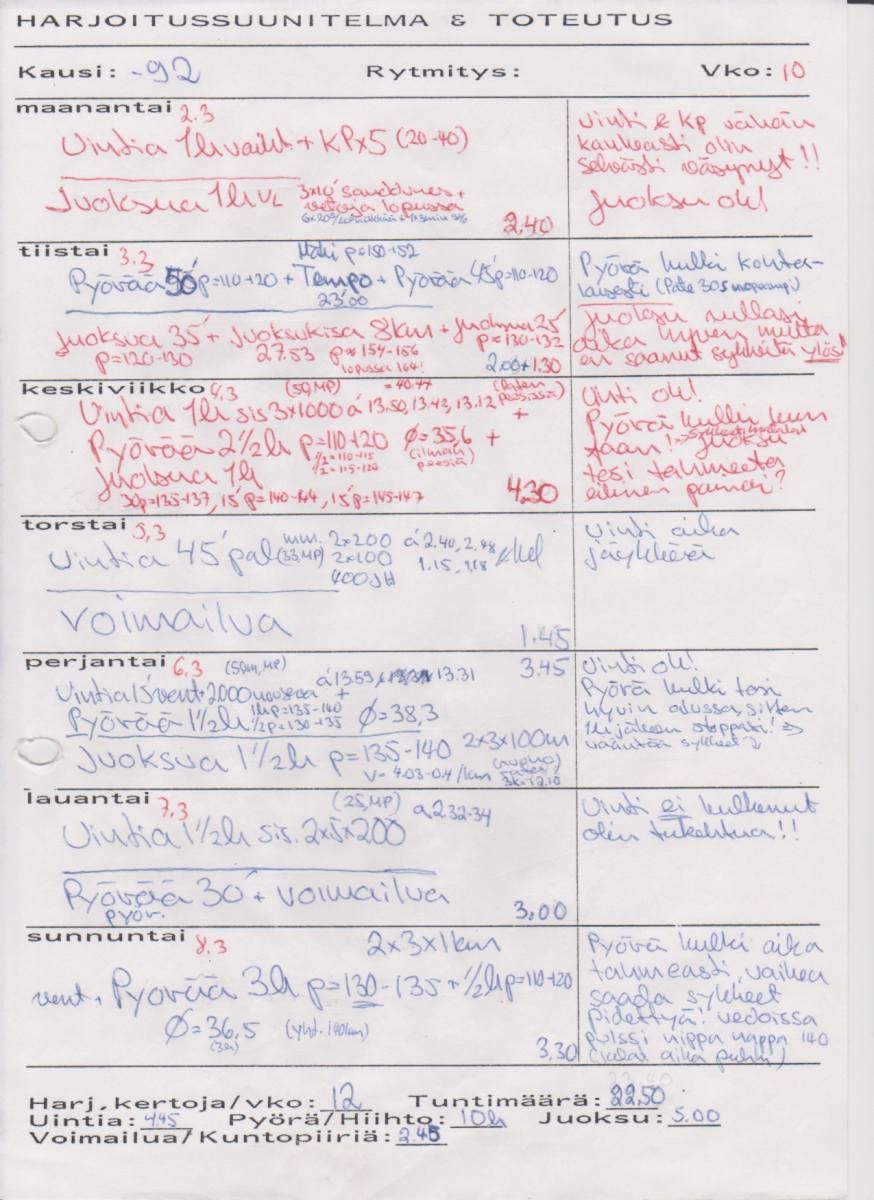 HARJOITUSSUUNITELMA & TOTEUTUS
Kausi: -92 Rytmitys: Vko: 10
maanantai 2.3
Uintia 1h vaiht + KPx5 (20-40)
Juoksua 1h VL 3x10'
vetoja lopussa
2.40
uinti & kp vähän
kauheasti olin
selvästi väsynyt!!
Juoksu ok!
tiistai 3.3
Mäki p=150-152
Pyörää 50' p=110-120 + Tempo + Pyörää 45' p=110-120
23'00
Juoksua 35' + Juoksukisa 8km + Juoksua 25'
p=120-130 27.53 p=154-156 p=130-132
lopussa 164!
2.00+1.30
Pyörä kulki kohta-
laisesti (Pate 305
Juoksu rullasi
aika hyvin mutta
en saanut sykkeitä ylös!
keskiviikko 4.3
(50,MP) = 40.44
Uintia 1h sis 3x1000 á 13.50, 13.42, 13.12 +
Pyörää 2 1/2h p=110+20 Ø=35,6 +
1/2=110-115
1/2=115-120
(ilman
peesiä)
Juoksua 1h
30p=135-137, 15'p=140-144, 15'p=145-147
4.30
Uinti ok!
Pyörä kulki kun
Juoksu
tosi tahmeeta
eilinen painoi?
torstai 5.3
Uintia 45' pal (33,MP) mm. 2x200 á 2.40, 2.48
2x100 1.15, 1.18
400JH
voimailua
1.45
Uinti aika
jäykkää
perjantai 6.3
(50m,MP) á 13.59, 13.31
3.45
Uintia 15'vent+2000 nousevaa +
Pyörää 1 1/2h 1h p=135-140
1/2p=130-135
Ø=38,3
Juoksua 1 1/2h p=135-140 2x3x100m
v=4.03-04/km
Uinti ok!
Pyörä kulki tosi
hyvin alussa, sitten
1h jälkeen stoppasi! =>
vääntää sykkeet
lauantai 7.3
(25,MP) á 2.32-34
Uintia 1 1/2h sis. 2x5x200
Pyörää 30' + voimailua
pyör.
3.00
Uinti ei kulkenut
olin tukehtua!!
sunnuntai 8.3
2x3x1km
vent + Pyörää 3h p=130-135 + 1/2h p=110+20
Ø=36,5 (yht. 140km)
(3h)
3.30
Pyörä kulki aika
tahmeasti, vaikea
saada sykkeet
pidettyä! vedoissa
pulssi nippa nappa 140
Harj.kertoja/vko: 12 Tuntimäärä: 22.50
Uintia: 4.45 Pyörä/Hiihto: 10h Juoksu: 5.00
Voimailua/Kuntopiiriä: 2.45